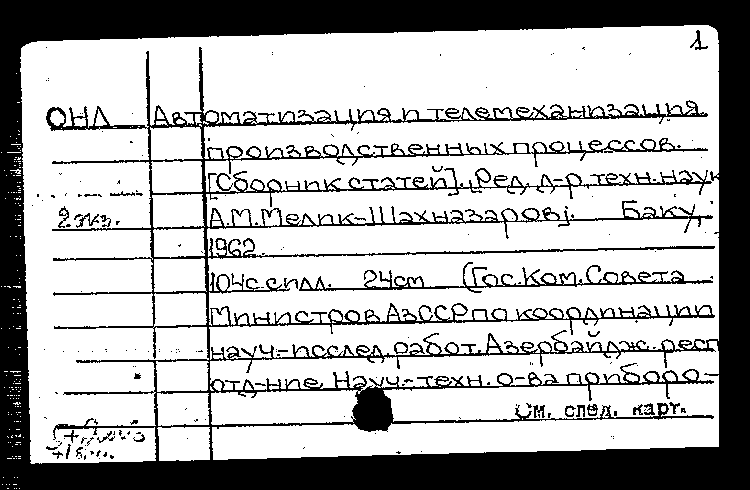 1
ОНЛ Автоматизация и телемеханизация
производственных процессов.
[Сборник статей]. [Ред. д-р техн. наук
2 экз. А.М. Мелик-Шахназаров]. Баку,
1962.
104 с. с илл. 24 см (Гос. Ком. Совета
Министров АзССР по координации
науч.-исслед. работ. Азербайдж. респ
отд-ние Науч.-техн. о-ва приборо-
См. след. карт.